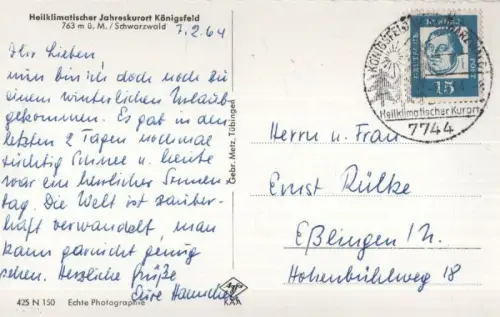 Heilklimatischer Jahreskurort Königsfeld
763 m ü. M. / Schwarzwald
7.2.64
Ihr Lieben,
nun bin ich doch noch zu
einem winterlichen Urlaub
gekommen. Es gab in den
letzten 2 Tagen nochmal
tüchtig Schnee u. heute
war ein herrlicher Sonnen-
tag. Die Welt ist zauber-
haft verwandelt, man
kann garnicht genug
sehen. Herzliche Grüße
Eure
425 N 150 Echte Photographie
Gebr. Metz, Tübingen
Agfa
KÖNIGSFELD
DEUTSCHE
15
Heilklimatischer Kurort
7744
Herrn u. Frau
Ernst Rülke
Eßlingen / N.
Hohenbühlweg 18